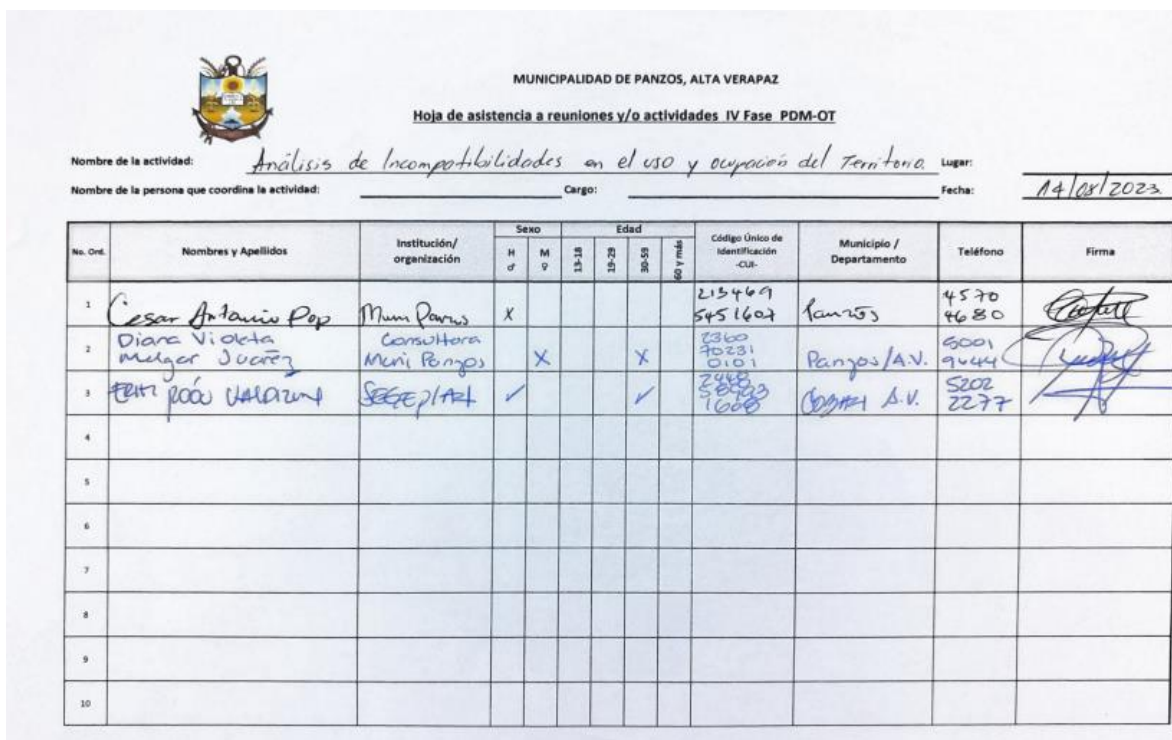 MUNICIPALIDAD DE PANZOS, ALTA VERAPAZ
Hoja de asistencia a reuniones y/o actividades IV Fase PDM-OT
Nombre de la actividad: Análisis de Incompatibilidades en el uso y ocupación del Territorio. Lugar:
Nombre de la persona que coordina la actividad: Cargo: Fecha: 14/08/2023.
No. Ord. Nombres y Apellidos Institución/ organización Sexo H ♂ M ♀ Edad 13-18 19-29 30-59 60 y más Código Único de Identificación -CUI- Municipio / Departamento Teléfono Firma
1 Cesar Antonio Pop Muni Panzos X 213469 5451607 Panzós 4570 4680
2 Diana Violeta Melgar Juárez Consultora Muni Panzos X X 2360 70231 0101 Panzos/A.V. 5001 9444
3 SEGEPLAN ✓ ✓ 1608 COBAN A.V. 5202 2277
4
5
6
7
8
9
10